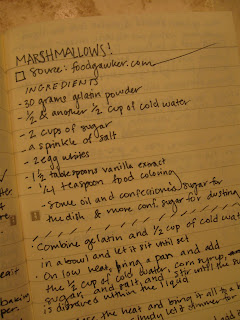 MARSHMALLOWS!
source: foodgawker.com
INGREDIENTS
- 30 grams gelatin powder
- 1/2 & another 1/2 cup of cold water
- 2 cups of sugar
a sprinkle of salt
- 2 egg whites
- 1 1/2 tablespoons vanilla extract
1/4 teaspoon food coloring
- some oil and confectioner sugar for
the dish & more conf. sugar for dusting
• Combine gelatin and 1/2 cup of cold water
in a bowl and let it sit until set
• On low heat, bring a pan and add
the 1/2 cup of cold water, corn syrup,
sugar, and salt, and stir until the sugar
is dissolved within the liquid
the heat and bring it all to a
let it simmer for